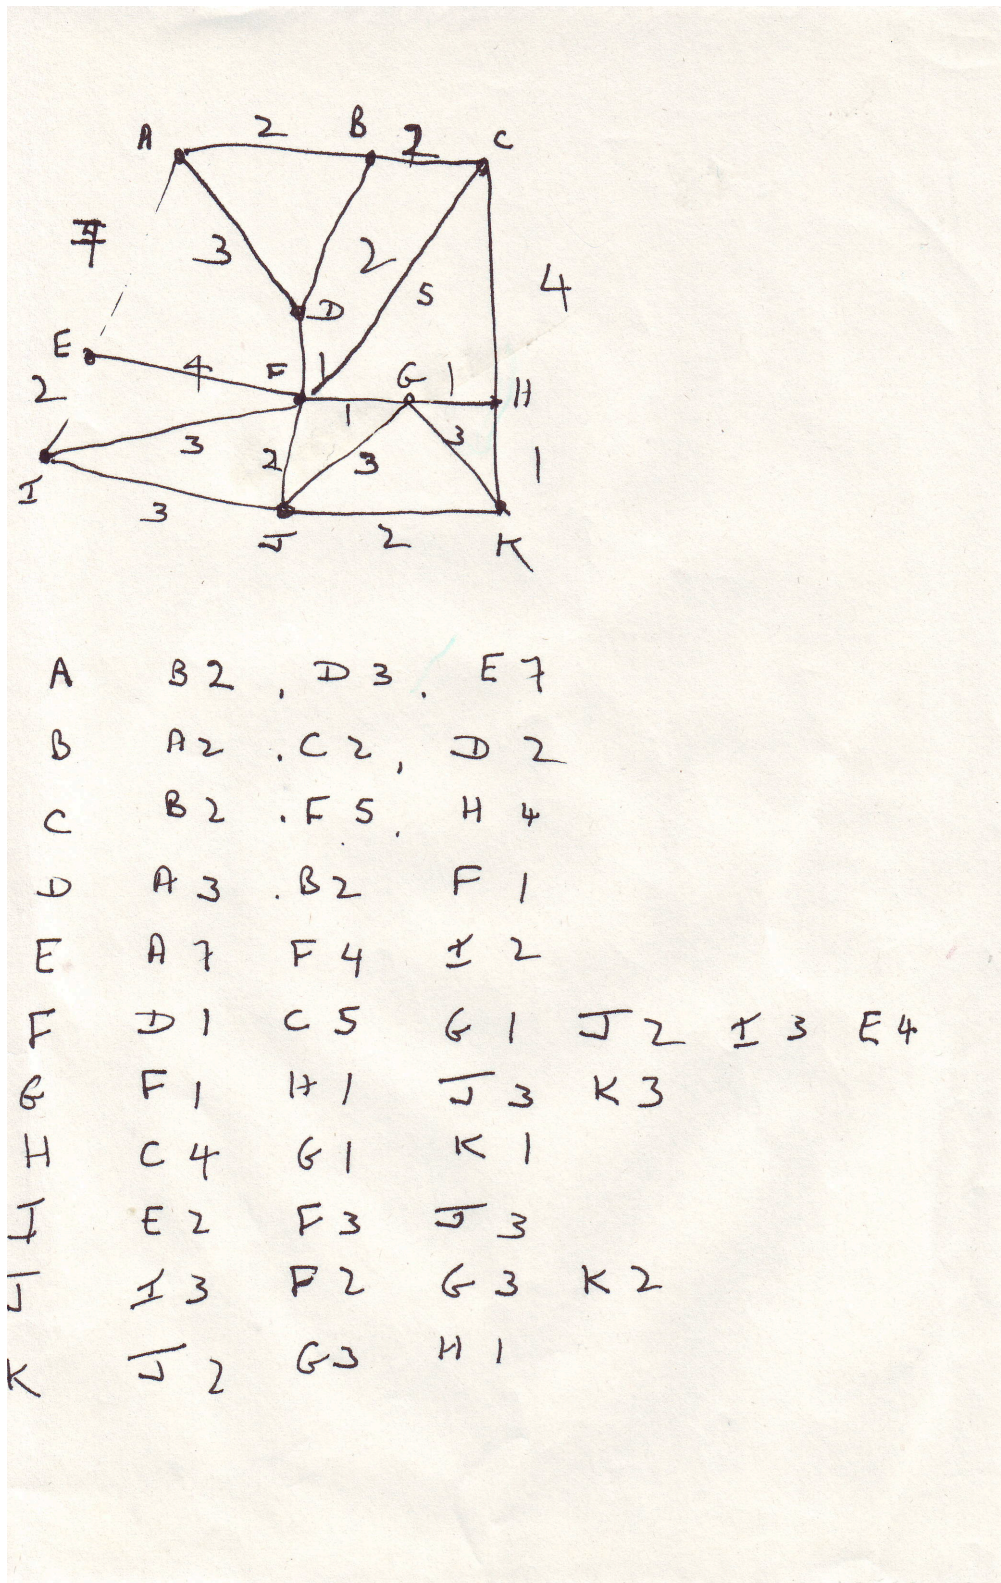 A 2 B 2 C
7 3 2 5 4
D
E 4 F 1 G 1 H
2 1
3 2 3 3 1
I 3 J 2 K
A B2 , D3 , E7
B A2 , C2, D2
C B2 , F5, H4
D A3 . B2 F1
E A7 F4 I2
F D1 C5 G1 J2 I3 E4
G F1 H1 J3 K3
H C4 G1 K1
I E2 F3 J3
J I3 F2 G3 K2
K J2 G3 H1